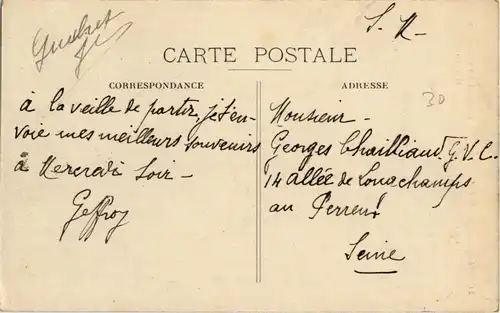 S. M.
CARTE POSTALE
CORRESPONDANCE
à la veille de partir, je t'en-
voie mes meilleurs souvenirs
à Mercredi Soir -
Geffroy
ADRESSE
30
Monsieur -
Georges Chailliaud. G.V.C.
14 allée de Longchamps
au Perreux
Seine